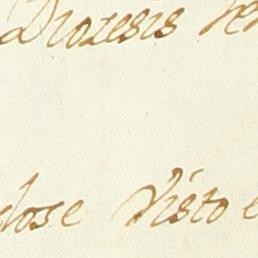 Diozesis
dose Visto